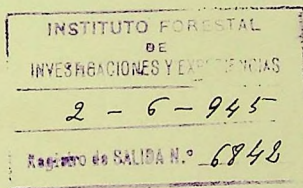 INSTITUTO FORESTAL
DE
INVESTIGACIONES Y EXPERIENCIAS
2 - 6 - 945
Registro de SALIDA N.º 6842